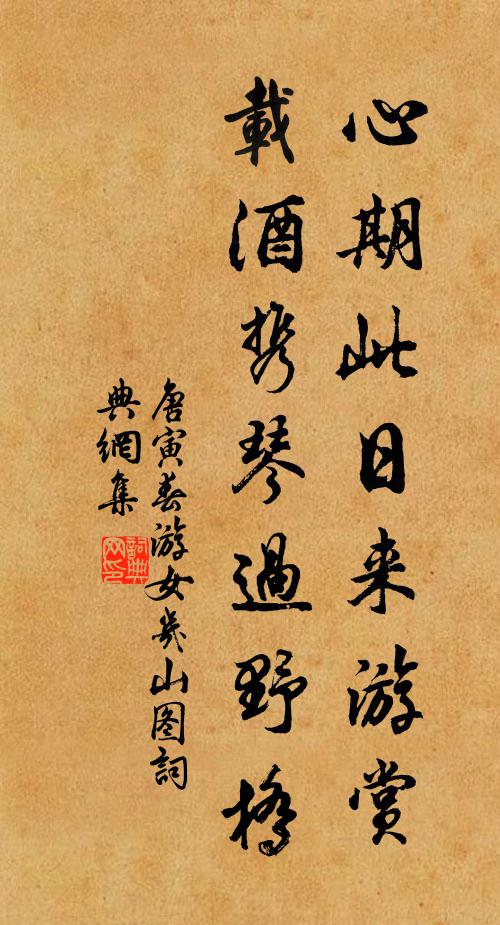 心期此日来游赏
載酒携琴過野橋
唐寅春游女几山图詞
典網集
詞典网印